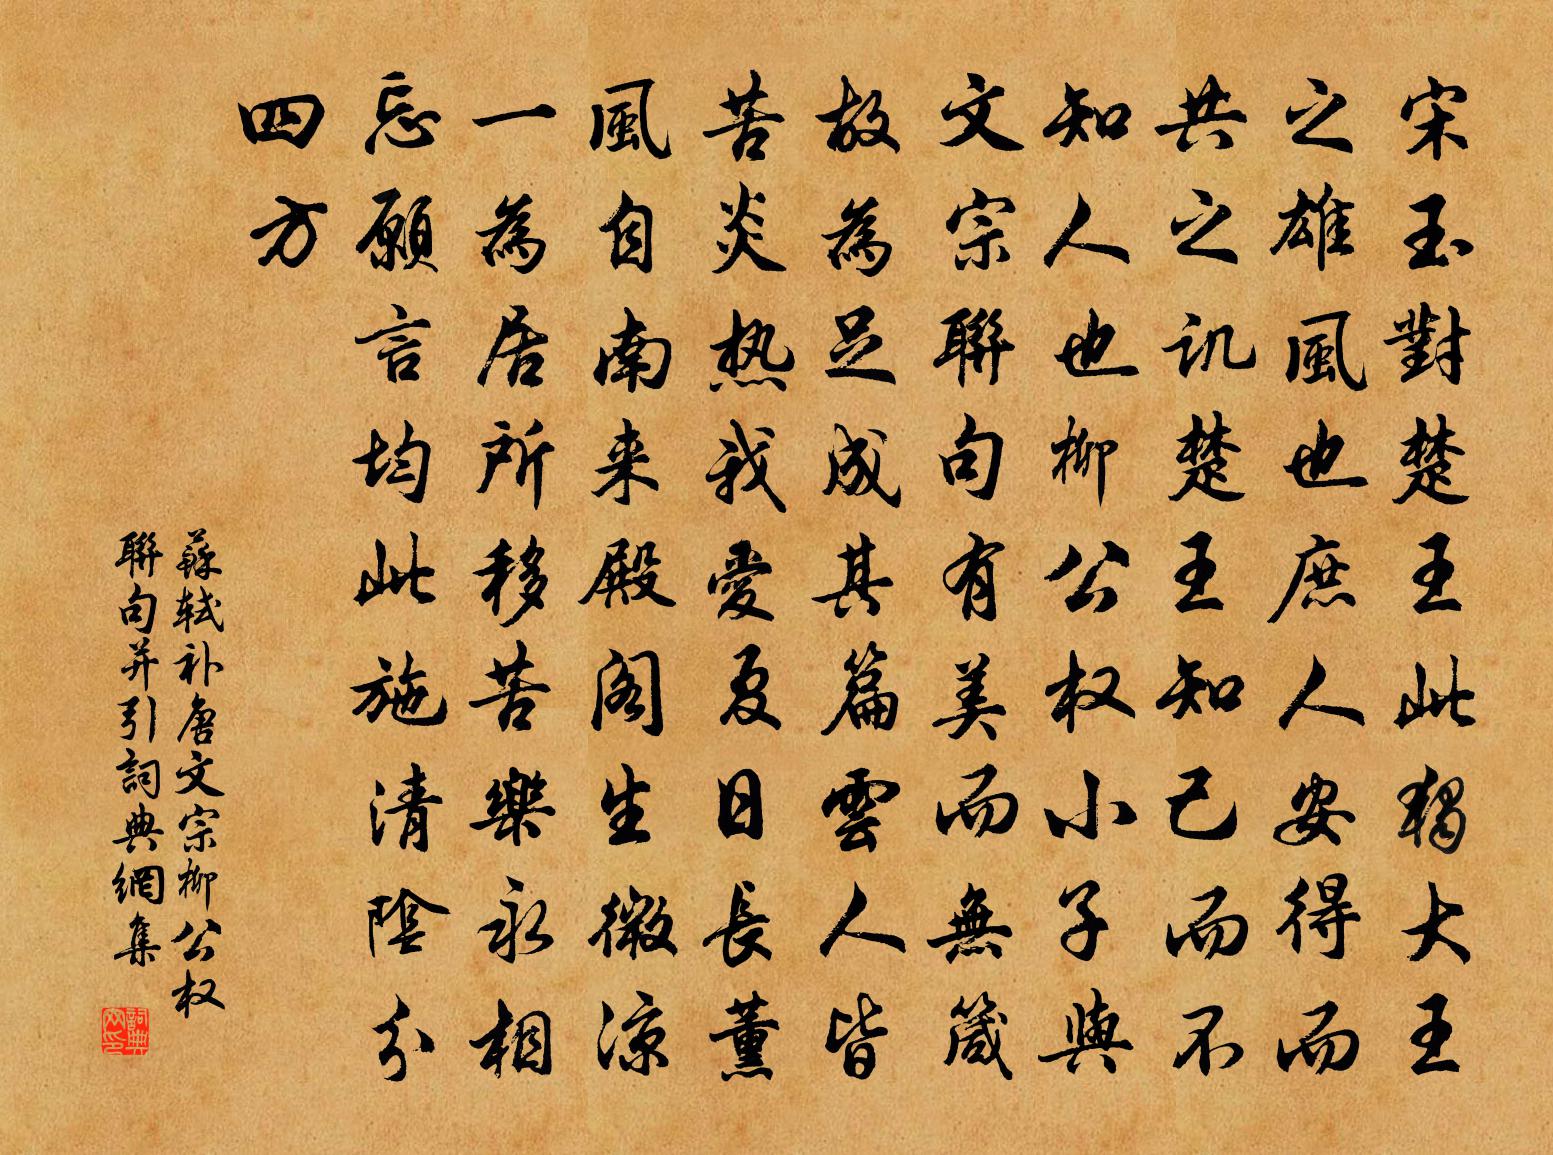 宋玉對楚王此獨大王
之雄風也庶人安得而
共之讥楚王知己而不
知人也柳公权小子與
文宗聯句有美而無箴
故為足成其篇雲人皆
苦炎热我愛夏日長薰
風自南来殿阁生微涼
一為居所移苦樂永相
忘願言均此施清陰分
四方
蘇轼补唐文宗柳公权
聯句并引詞典網集